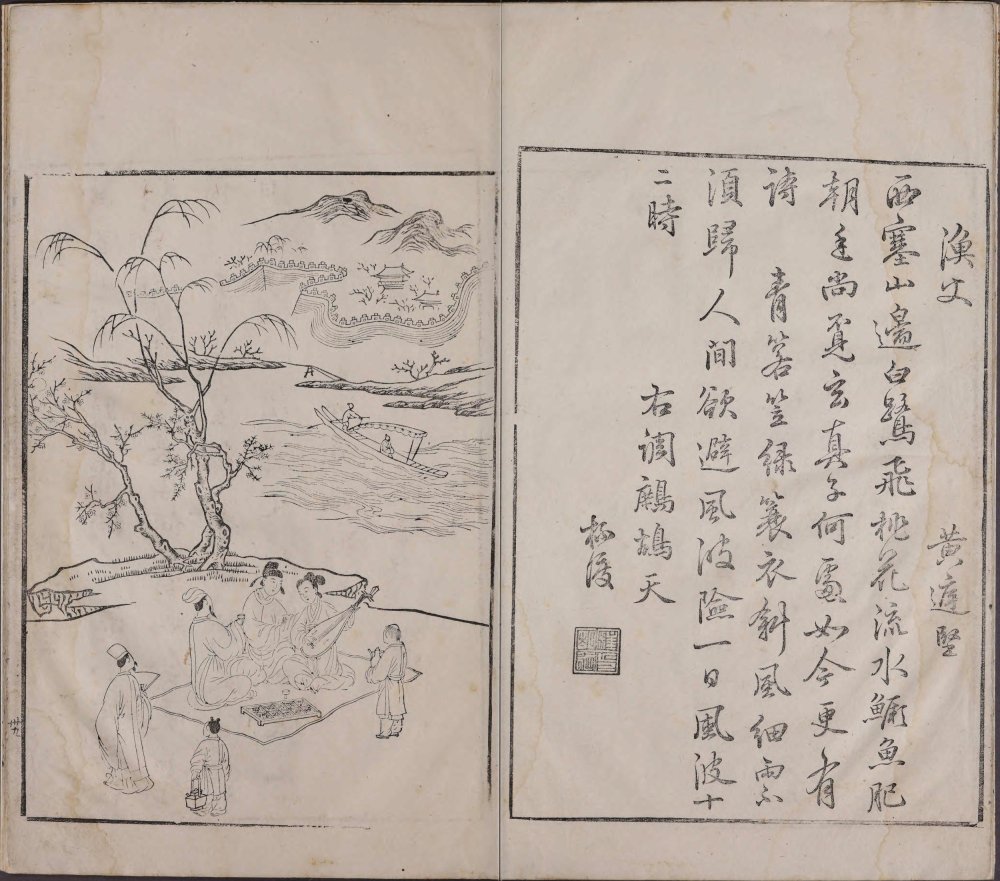 漁父 黃庭堅
西塞山邊白鷺飛桃花流水鱖魚肥
朝廷尚覓玄真子何處如今更有
詩 青箬笠綠蓑衣斜風細雨不
須歸人間欲避風波險一日風波十
二時 右調鷓鴣天